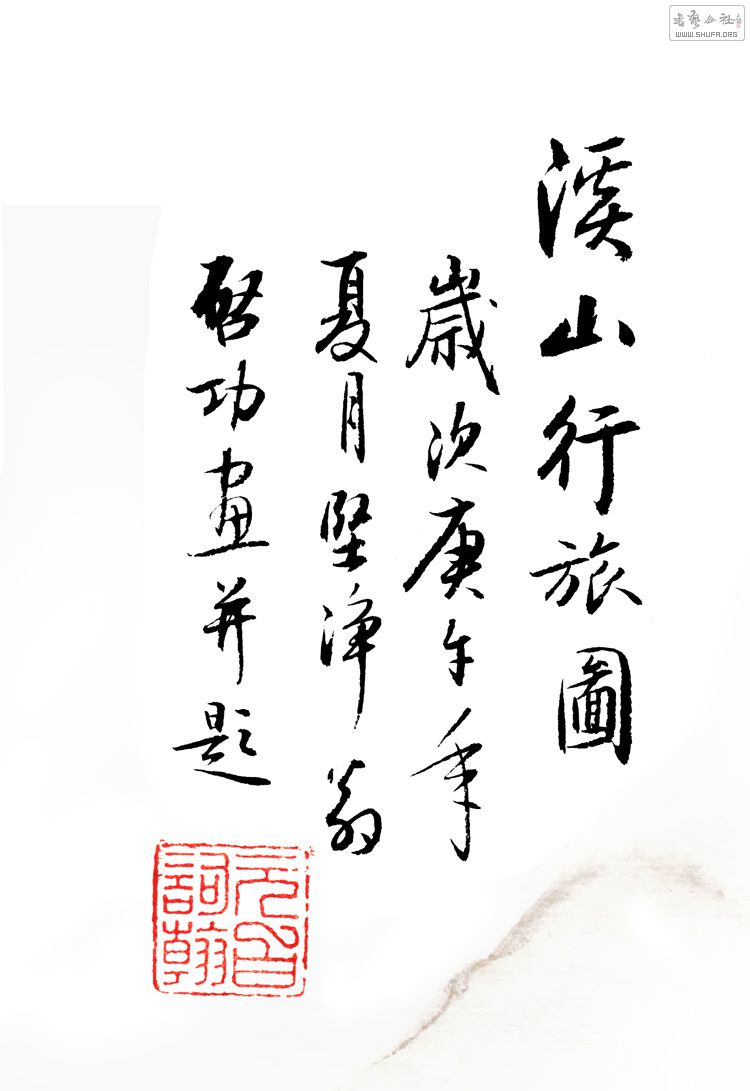 溪山行旅圖
歲次庚午年
夏月堅淨翁
啓功畫并題
元伯
詞翰
書藝公社
WWW.SHUFA.ORG